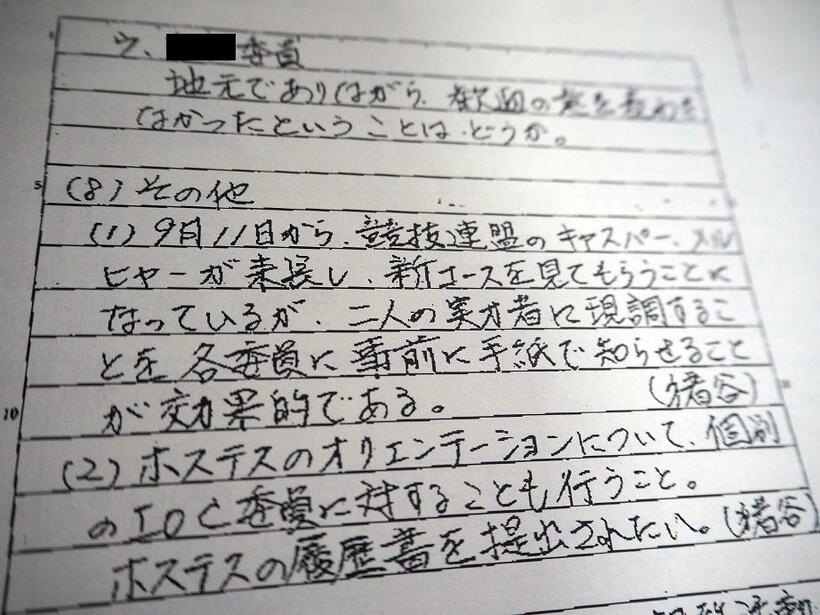 ウ、委員
地元でありながら、歓迎の意を表わさ
なかったということは、どうか。
5
(8) その他
(1) 9月11日から、競技連盟のキャスパー、メル
ヒャーが来長し、新コースを見てもらうことに
なっているが、二人の実力者に現調するこ
とを各委員に事前に手紙で知らせること
10
が効果的である。 (猪谷)
(2) ホステスのオリエンテーションについて、個別
のIOC委員に対することも行うこと。
ホステスの履歴書を提出されたい。(猪谷)